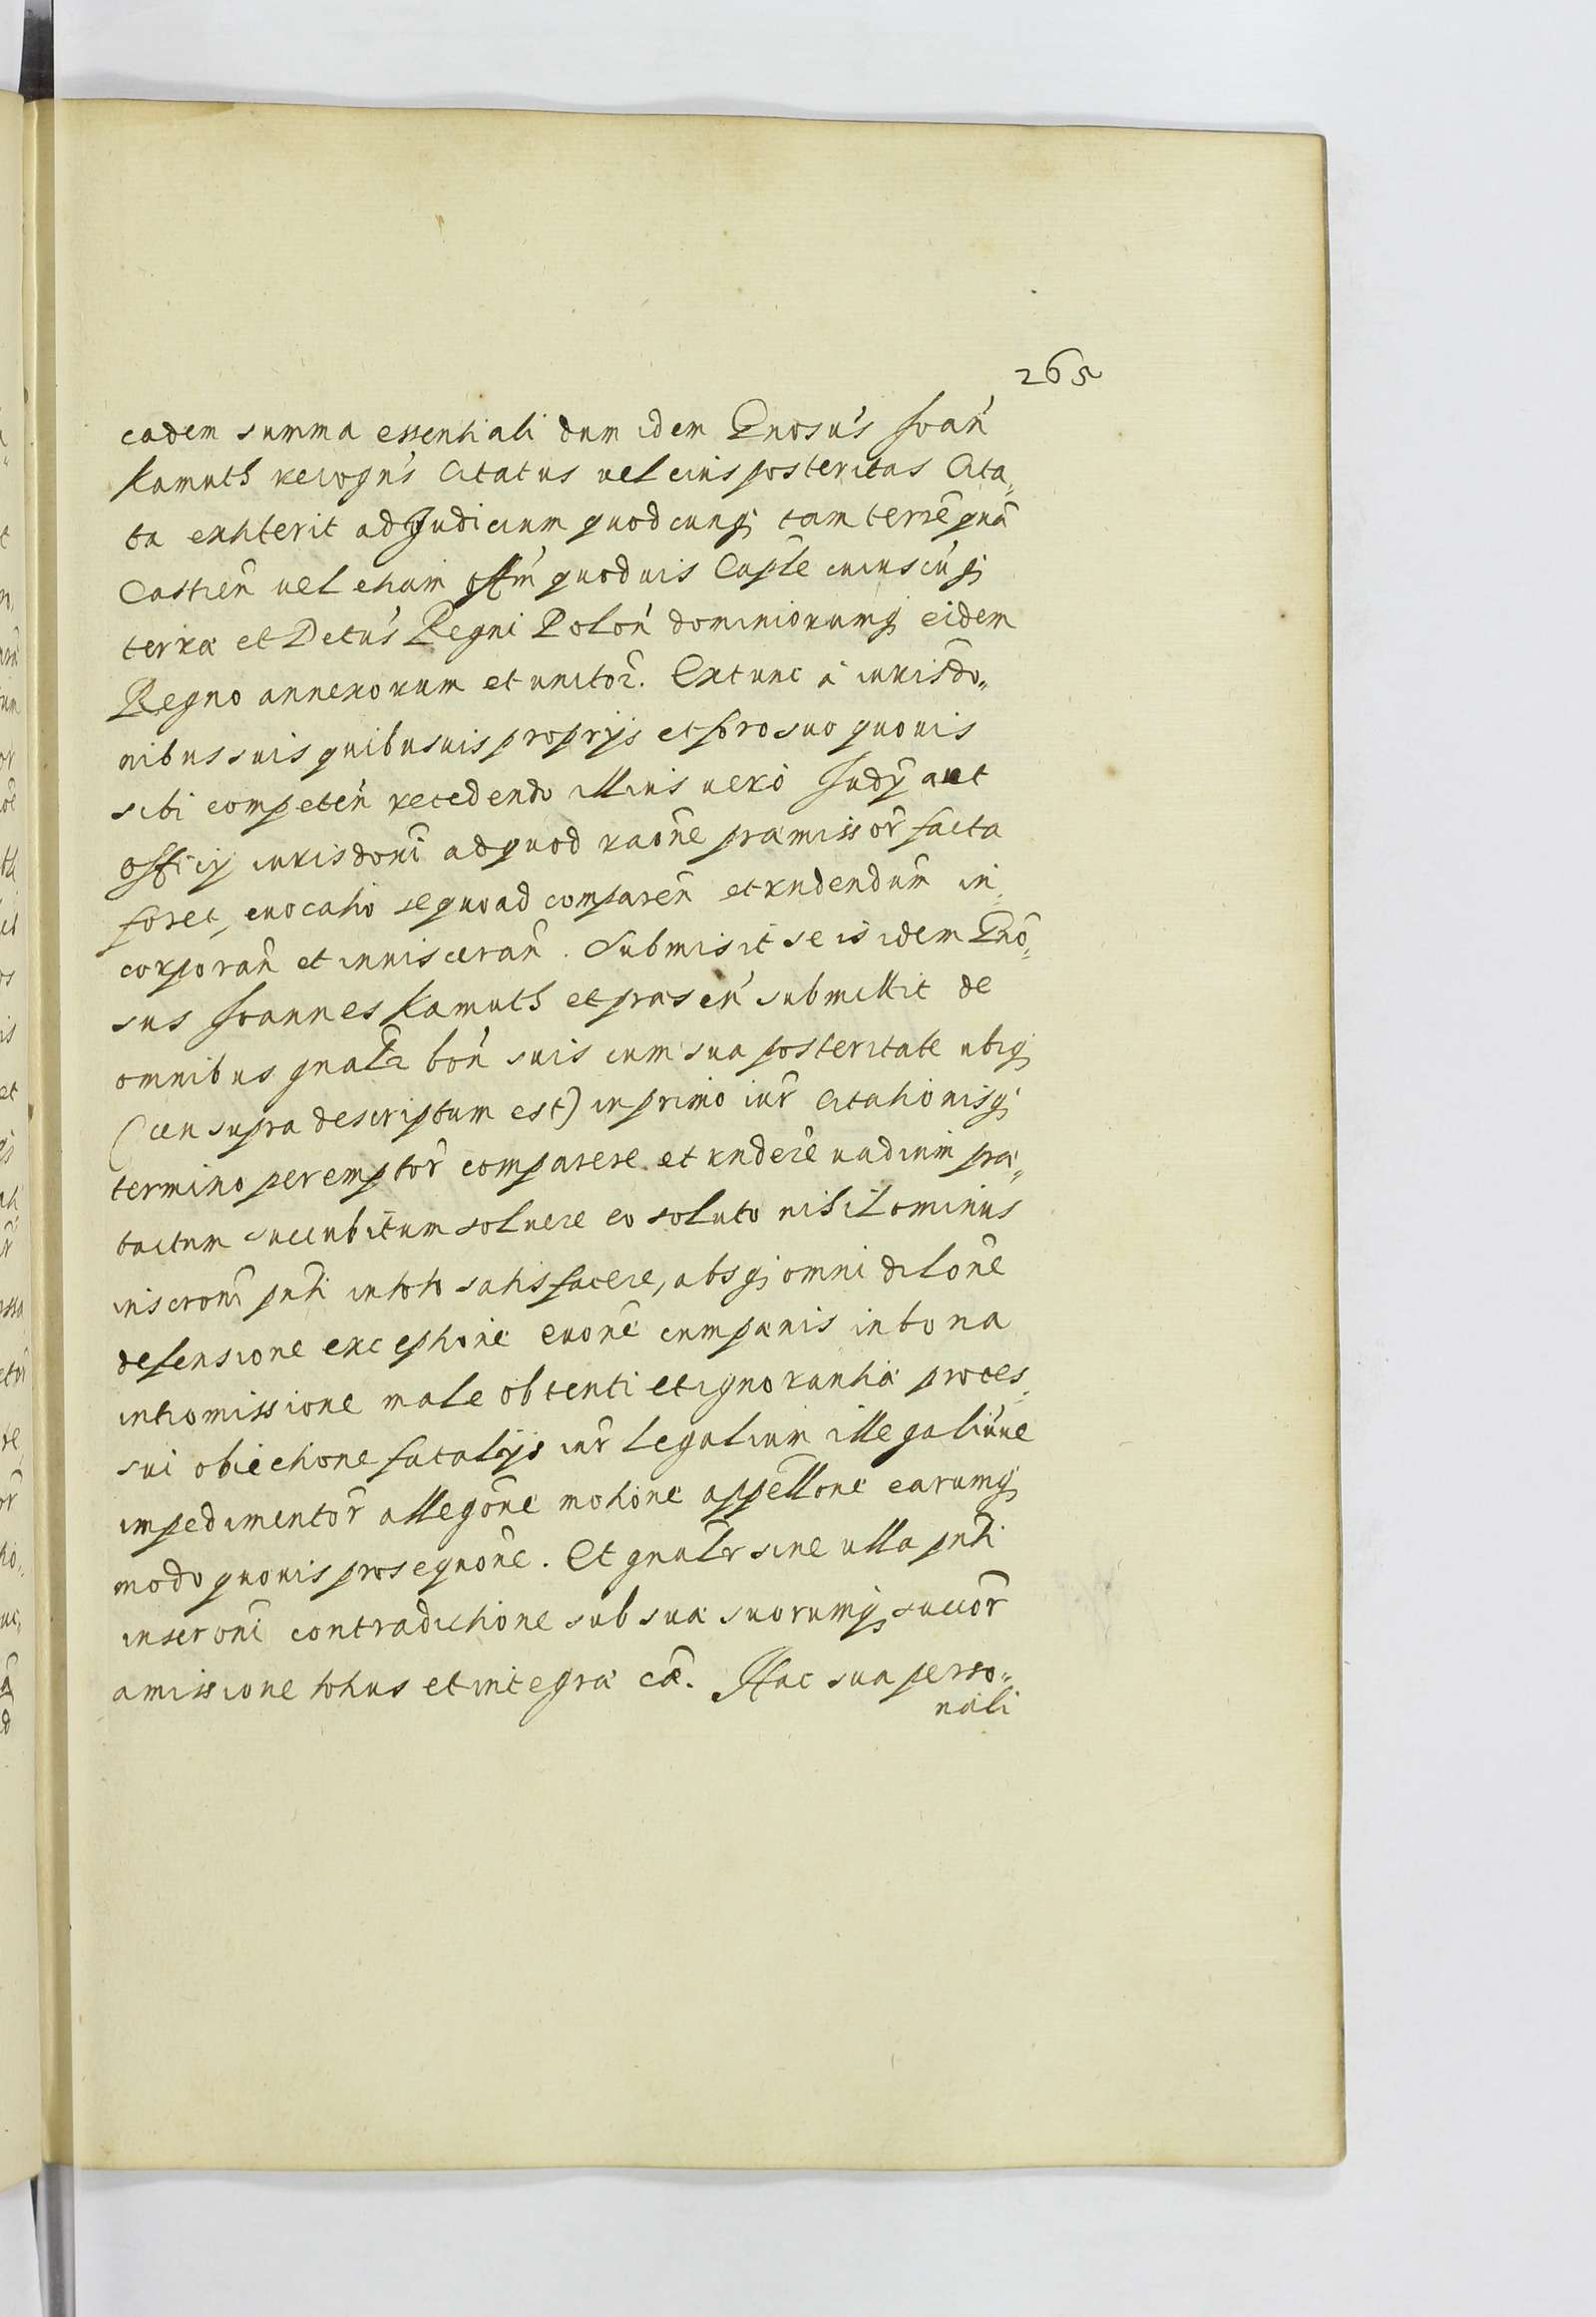 265
eadem summa essentiali dum idem Gnosús Joań
Kamuth recogńs Citatus uel eius posteritas Cita„
ta extiterit ad Judicium quodcunq; tam terrẽ quã
Castreñ uel etiam offm̃ quoduis Caplẽ cuiuscúq;
terræ et Detús Regni Polon dominiorumq; eidem
Regno annexorum et unitoȓ. Extunc à iurisdo„
nibus suis quibusuis proprijs et foro suo quouis
sibi competeñ recedendo illius uerò Judÿ aut
officij iurisdoni ad quod raõne præmissoȓ facta
foret, euocatio se quoad compareñ et rñdendum in„
corporañ et inuisceran̄. Submisit se is idem Gno„
sus Joannes Kamuth et præseń submittit de
omnibus gnalr̃ boń suis cum sua posteritate ubiq;
(ceu supra descriptum est) in primo iur̃ Citationisq;
termino peremptor̃ comparere et rñdere uadium præ„
tactum succubitum soluere eo soluto nihilominus
inscroni pñti in toto satisfacere, absq; omni dilone
defensione exceptione euone cumpanis in bona
intromissione male obtenti et ignorantiæ proces„
sui obiectione fatalijs iur̃ legalium illegaliumue
impedimentor̃ allegone motione appellone earumq;
modo quouis prosequone. Et gnalr̃ sine ulla pñti
inscroni contradictione sub sua suorumq; succor̃
amissione totius et integræ cæ. Hac sua perso„
nali